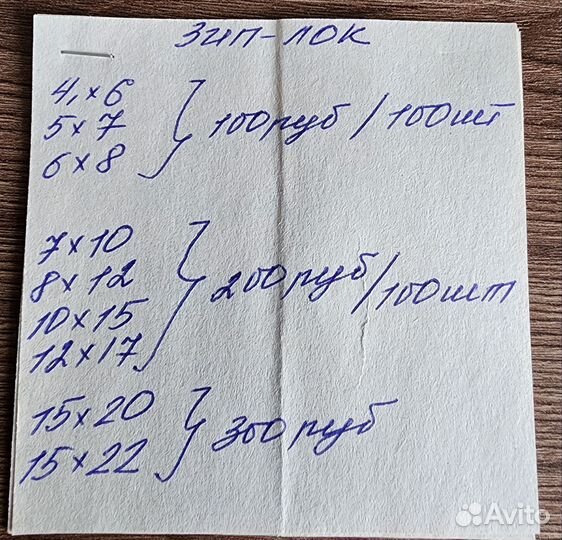 ЗИП-ЛОК
4,×6
5×7
6×8
100руб / 100шт
7×10
8×12
10×15
12×17
200руб / 100шт
15×20
15×22
300руб
Avito